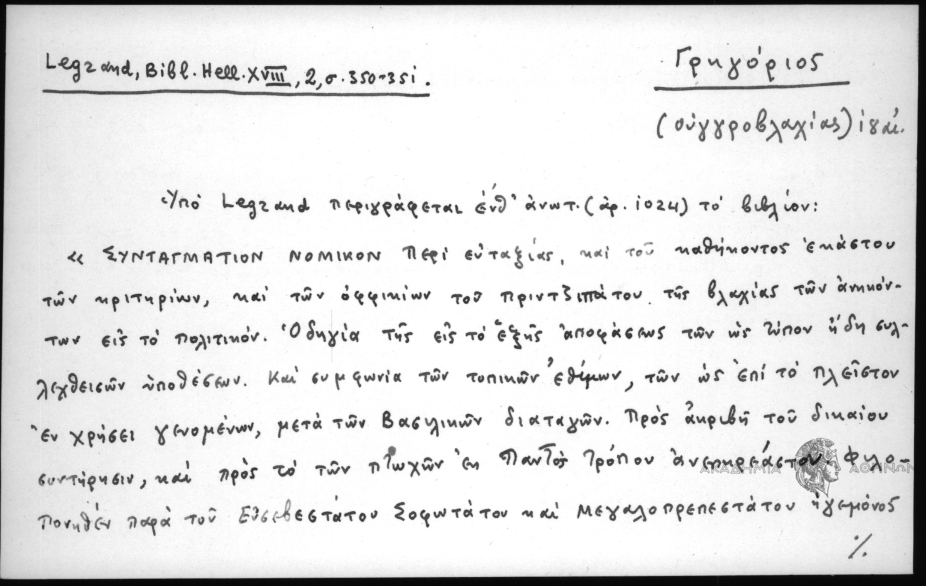 Legrand, Bibl. Hell. XVIII, 2, σ. 350-351.
Γρηγόριος
(Οὑγγροβλαχίας) ἰ γαί.
Ὑπό Legrand περιγράφεται ἐνθ' ἀνωτ. (ἀρ. 1024) τό βιβλίον:
« ΣΥΝΤΑΓΜΑΤΙΟΝ ΝΟΜΙΚΟΝ Περί εὐταξίας, καί τοῦ καθήκοντος ἑκάστου
τῶν κριτηρίων, καί τῶν ὀφφικίων τοῦ Πριντζιπάτου τῆς Βλαχίας τῶν ἀνηκόν-
των εἰς τό πολιτικόν. Ὁδηγία τῆς εἰς τό ἑξῆς ἀποφάσεως τῶν ὡς τύπον ἤδη συλ-
λεχθεισῶν ὑποθέσεων. Καί συμφωνία τῶν τοπικῶν ἐθίμων, τῶν ὡς ἐπί τό πλεῖστον
ἐν χρήσει γενομένων, μετά τῶν Βασιλικῶν διαταγῶν. Πρός ἀκριβῆ τοῦ δικαίου
συντήρησιν, καί πρός τό τῶν πτωχῶν ἐκ Παντός Τρόπου ἀνεπηρέαστον. Φιλο-
πονηθέν παρά τοῦ Εὐσεβεστάτου Σοφωτάτου καί Μεγαλοπρεπεστάτου ἡγεμόνος
ΑΚΑΔΗΜΙΑ ΑΘΗΝΩΝ
%